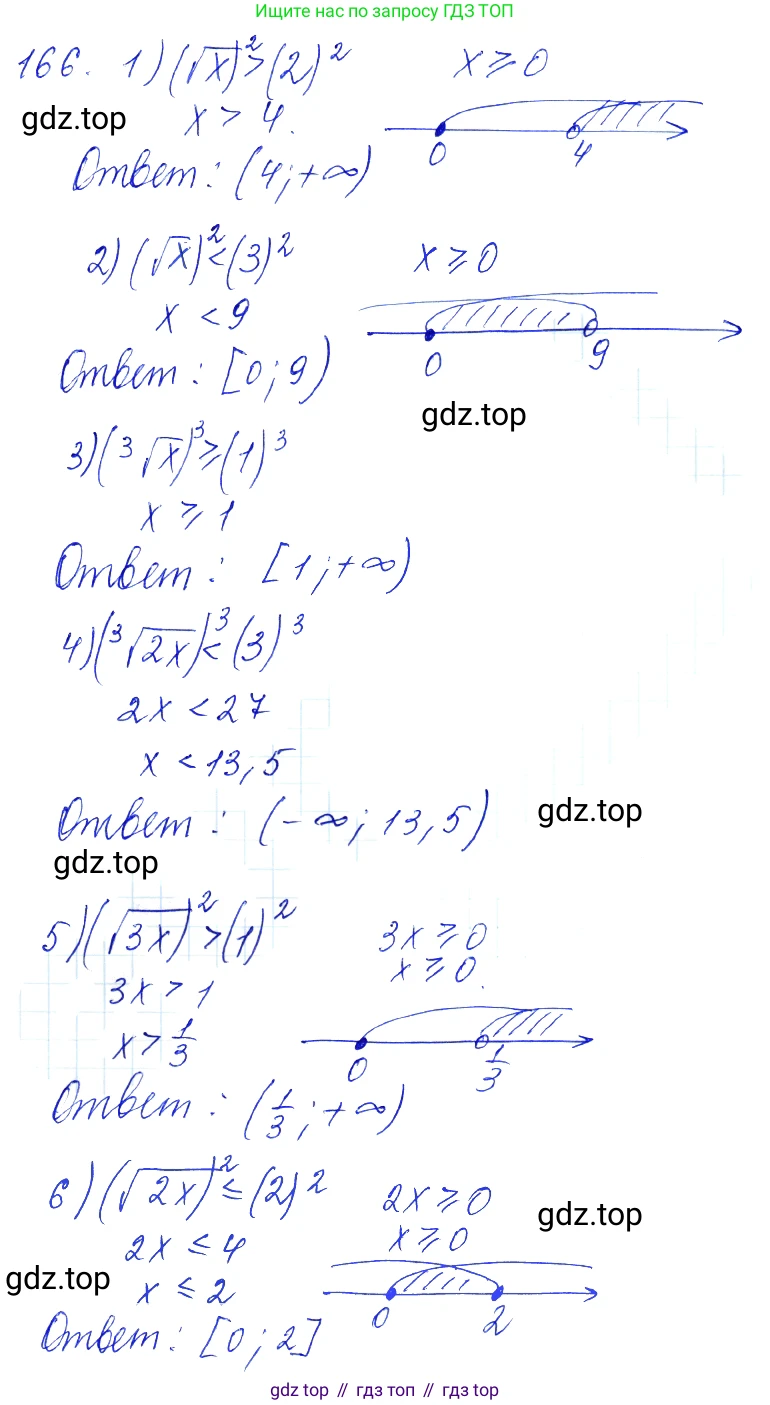 Ищите нас по запросу ГДЗ ТОП
166. 1) (√x)² > (2)² x ⩾ 0
gdz.top x > 4.
0 4
Ответ: (4; +∞)
2) (√x)² < (3)² x ⩾ 0
x < 9
0 9
Ответ: [0; 9)
gdz.top
3) (³√x)³ ⩾ (1)³
x ⩾ 1
Ответ: [1; +∞)
4) (³√2x)³ < (3)³
2x < 27
x < 13,5
Ответ: (-∞; 13,5) gdz.top
gdz.top
5) (√3x)² > (1)² 3x ⩾ 0
3x > 1 x ⩾ 0.
x > 1/3
0 1/3
Ответ: (1/3; +∞)
6) (√2x)² ≤ (2)² 2x ⩾ 0 gdz.top
2x ≤ 4 x ⩾ 0
gdz.top x ≤ 2
0 2
Ответ: [0; 2]
gdz top // гдз топ // гдз top